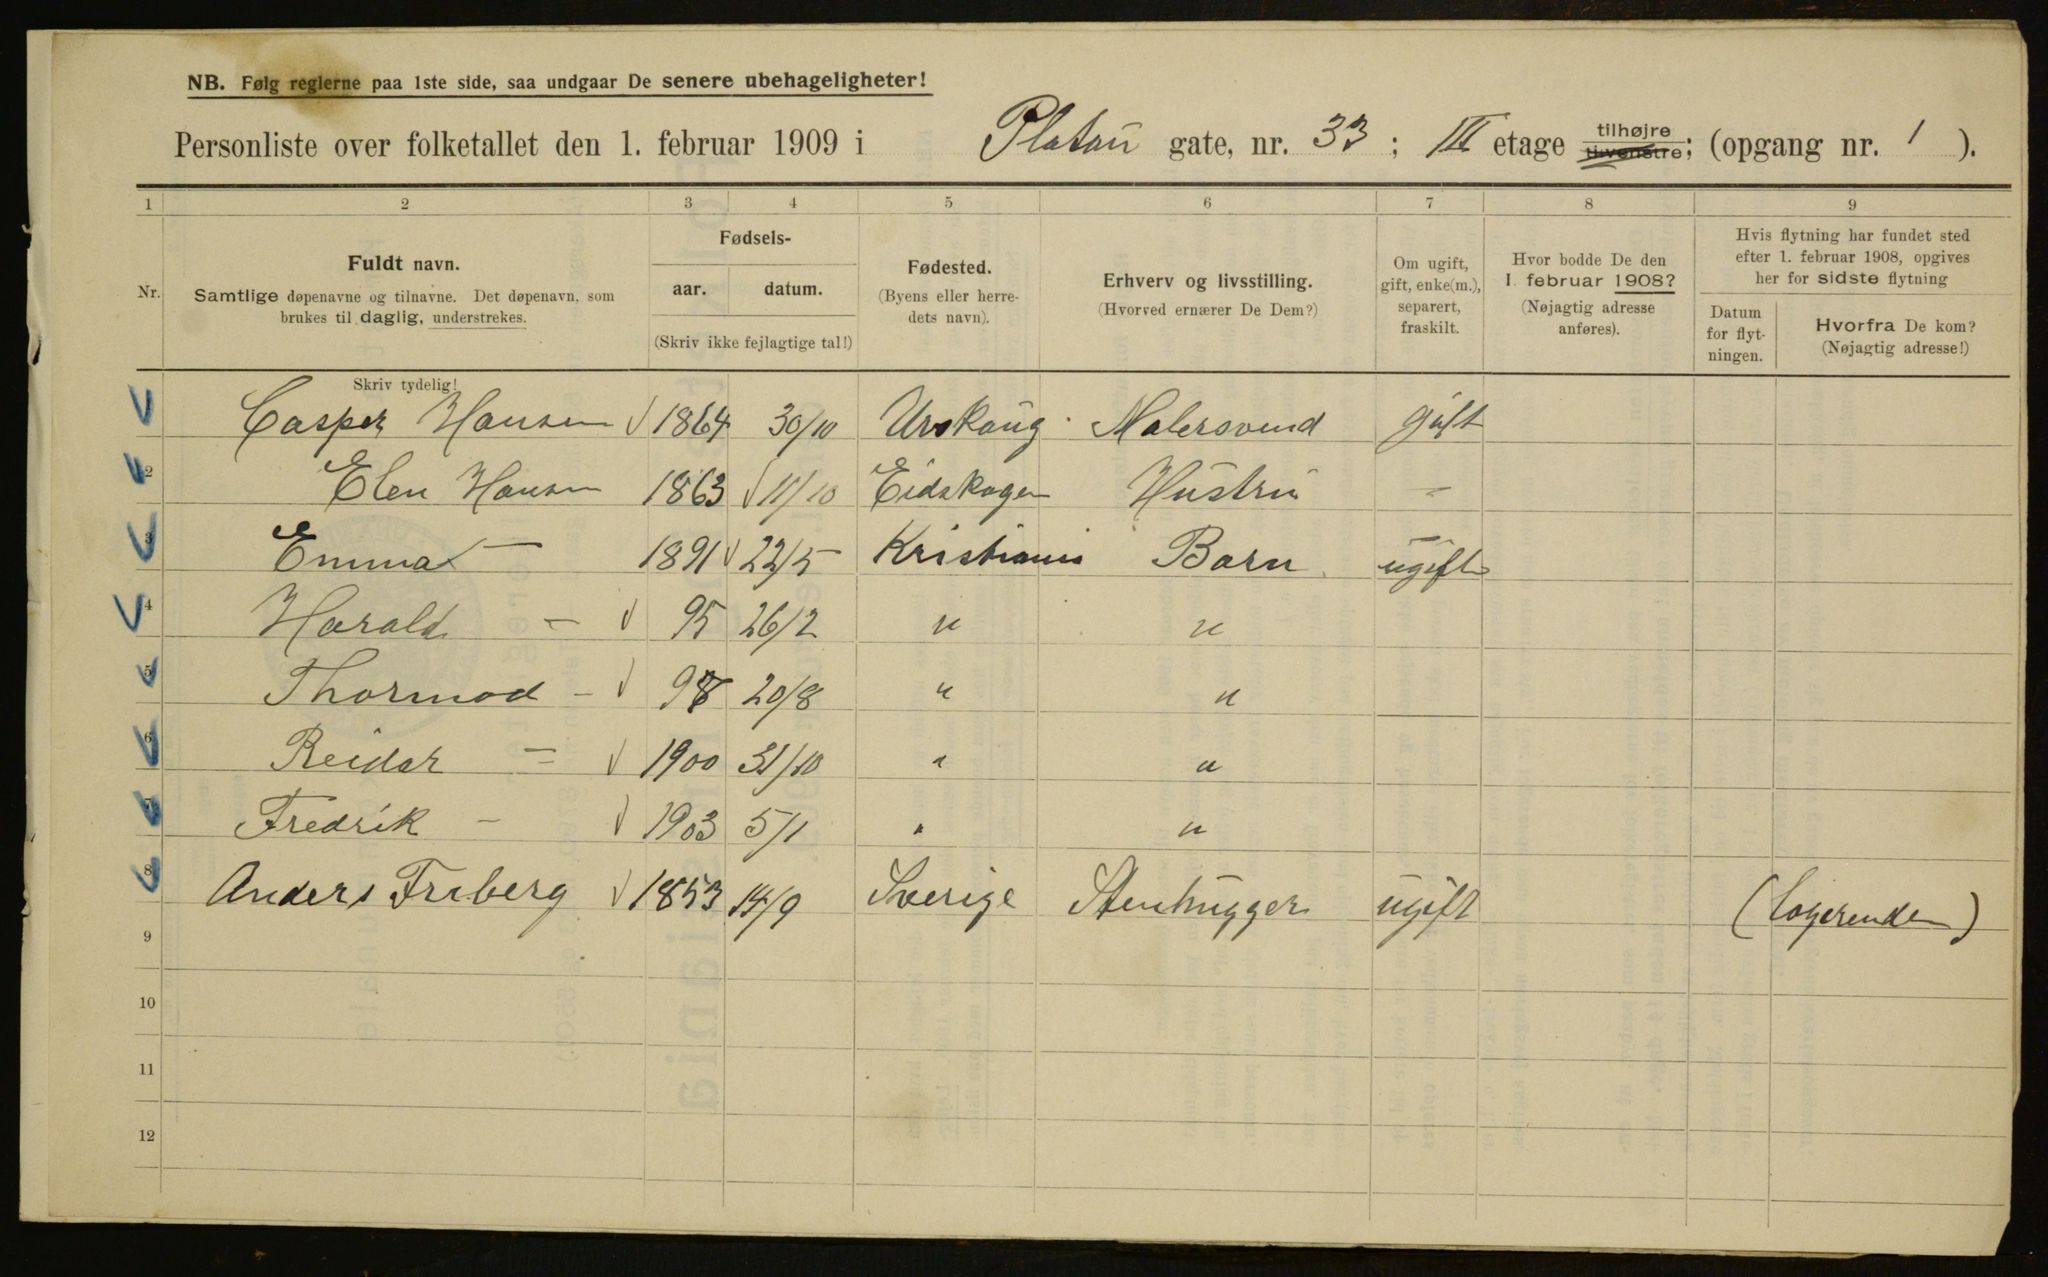 NB. Følg reglerne paa 1ste side, saa undgaar De senere ubehageligheter!
Personliste over folketallet den 1. februar 1909 i Platou gate, nr. 33; III etage tilhøjre tilvenstre; (opgang nr. 1).
1 2 3 4 5 6 7 8 9
Nr.
Fuldt navn.
Samtlige døpenavne og tilnavne. Det døpenavn, som
brukes til daglig, understrekes.
Skriv tydelig!
Fødsels-
aar. datum.
(Skriv ikke fejlagtige tal!)
Fødested.
(Byens eller herre-
dets navn).
Erhverv og livsstilling.
(Hvorved ernærer De Dem?)
Om ugift,
gift, enke(m.),
separert,
fraskilt.
Hvor bodde De den
1. februar 1908?
(Nøjagtig adresse
anføres).
Hvis flytning har fundet sted
efter 1. februar 1908, opgives
her for sidste flytning
Datum
for flyt-
ningen.
Hvorfra De kom?
(Nøjagtig adresse!)
1 Casper Hansen 1864 30/10 Urskoug Malersvend gift
2 Elen Hansen 1863 11/10 Eidskogen Hustru "
3 Emma — 1891 22/5 Kristiania Barn ugift
4 Harald — 95 26/2 " "
5 Thormod — 98 20/8 " "
6 Reidar — 1900 31/10 " "
7 Fredrik — 1903 5/1 " "
8 Anders Friberg 1853 14/9 Sverige Stenhugger ugift (logerende)
9
10
11
12